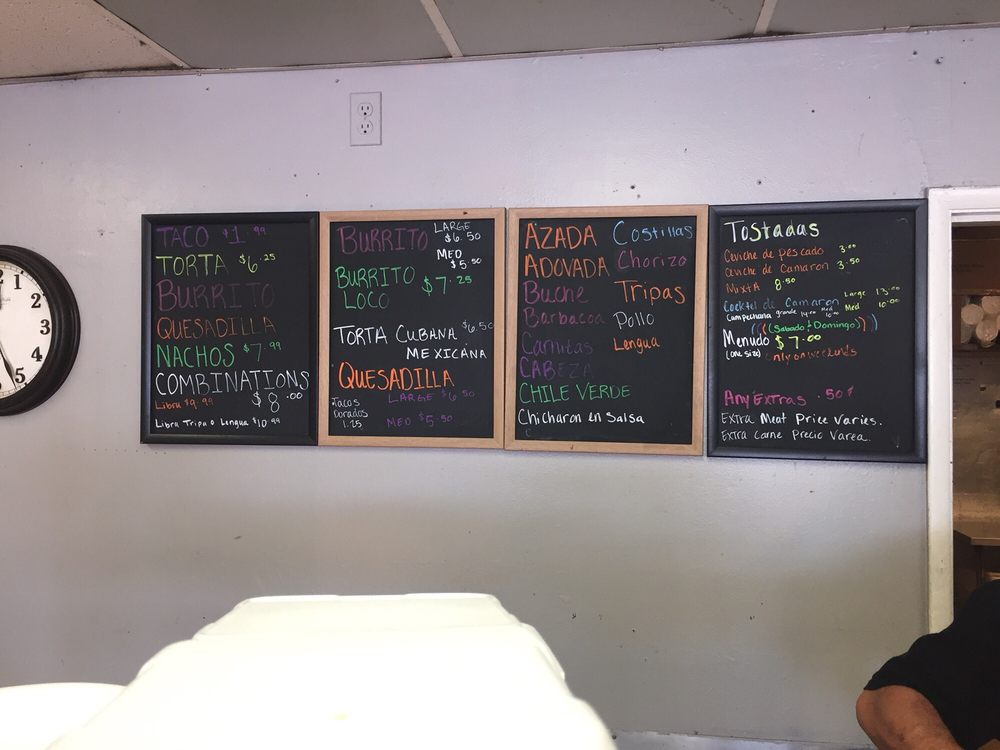 1
2
3
4
5
TACO $1.99
TORTA $6.25
BURRITO
QUESADILLA
NACHOS $7.99
COMBINATIONS
$8.00
Libra $9.99
Libra Tripa o Lengua $10.99
BURRITO LARGE $6.50
MED $5.50
BURRITO LOCO $7.25
TORTA CUBANA $6.50
MEXICANA
QUESADILLA
LARGE $6.50
MED $5.50
Tacos
Dorados
1.25
AZADA
ADOVADA
Buche
Barbacoa
Carnitas
CABEZA
CHILE VERDE
Chicharon en Salsa
Costillas
Chorizo
Tripas
Pollo
Lengua
Tostadas
Ceviche de Pescado 3.00
Ceviche de Camaron 3.50
MIXTA 8.50
Cocktel de Camaron Large 13.00 Med 10.00
Campechana grande 14.00 Med
((((Sabado + Domingo))))
Menudo $7.00
(one size) only on weekends
Any Extras .50¢
Extra Meat Price Varies.
Extra Carne Precio Varea.